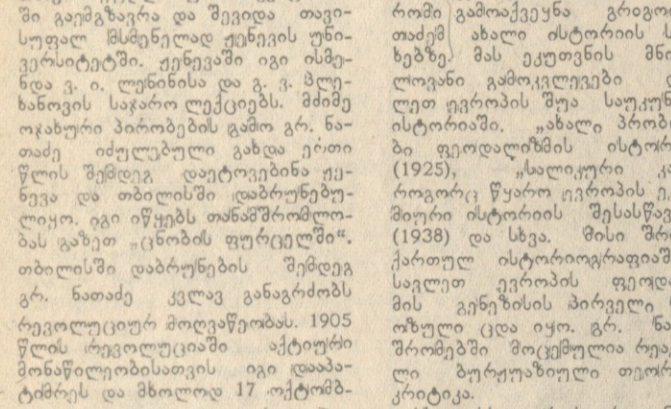 ში გაემგზავრა და შევიდა თავი-
სუფალ მსმენელად ჟენევის უნი-
ვერსიტეტში. ჟენევაში იგი ისმე-
ნდა ვ. ი. ლენინისა და გ. ვ. პლე-
ხანოვის საჯარო ლექციებს. მძიმე
ოჯახური პირობების გამო გრ. ნა-
თაძე იძულებული გახდა ერთი
წლის შემდეგ დაეტოვებინა ჟე-
ნევა და თბილისში დაბრუნებუ-
ლიყო. იგი იწყებს თანამშრომლო-
ბას გაზეთ „ცნობის ფურცელში“.
თბილისში დაბრუნების შემდეგ
გრ. ნათაძე კვლავ განაგრძობს
რევოლუციურ მოღვაწეობას. 1905
წლის რევოლუციაში აქტიური
მონაწილეობისათვის იგი დააპა-
ტიმრეს და მხოლოდ 17 ოქტომბ-
რომი გამოაქვეყნა
თაძემ ახალი ისტორიის
ხებზე. მას ეკუთვნის
ლოვანი გამოკვლევები
ლეთ ევროპის შუა
ისტორიაში. „ახალი
ბი ფეოდალიზმის
(1925), „სალიკური
როგორც წყარო ევროპის
მიური ისტორიის
(1938) და სხვა. მისი
ქართულ
სავლეთ ევროპის
მის გენეზისის პირველი
ოზული ცდა იყო. გრ.
შრომებში მოცემულია
ლი ბურჟუაზიული
კრიტიკა.